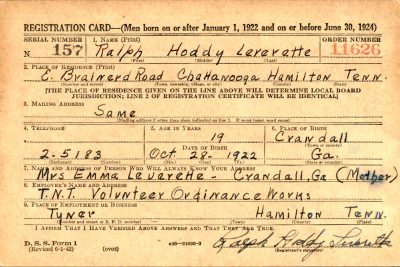 REGISTRATION CARD—(Men born on or after January 1, 1922 and on or before June 30, 1924)
SERIAL NUMBER 1. NAME (Print) ORDER NUMBER
N 157 Ralph Hoddy Leverette 11626
(First) (Middle) (Last)
2. PLACE OF RESIDENCE (Print)
E. Brainerd Road Chattanooga Hamilton Tenn.
(Town, township, village or city) (County) (State)
[THE PLACE OF RESIDENCE GIVEN ON THE LINE ABOVE WILL DETERMINE LOCAL BOARD
JURISDICTION; LINE 2 OF REGISTRATION CERTIFICATE WILL BE IDENTICAL]
3. MAILING ADDRESS
Same
[Mailing address if other than place indicated on line 2. If same insert word same]
4. TELEPHONE 5. AGE IN YEARS 6. PLACE OF BIRTH
19 Crandall
DATE OF BIRTH (Town or county)
2-5183 Oct 28- 1922 Ga.
(Exchange) (Number) (Mo.) (Day) (Yr.) (State or country)
7. NAME AND ADDRESS OF PERSON WHO WILL ALWAYS KNOW YOUR ADDRESS
Mrs Emma Leverette - Crandall, Ga (Mother)
8. EMPLOYER'S NAME AND ADDRESS
T.N.T. Volunteer Ordinance Works
9. PLACE OF EMPLOYMENT OR BUSINESS
Tyner Hamilton Tenn.
(Number and street or R. F. D. number) (Town) (County) (State)
I AFFIRM THAT I HAVE VERIFIED ABOVE ANSWERS AND THAT THEY ARE TRUE.
D. S. S. Form 1
(Revised 6-1-42) (over) Ralph Hoddy Leverette
(Registrant's signature)